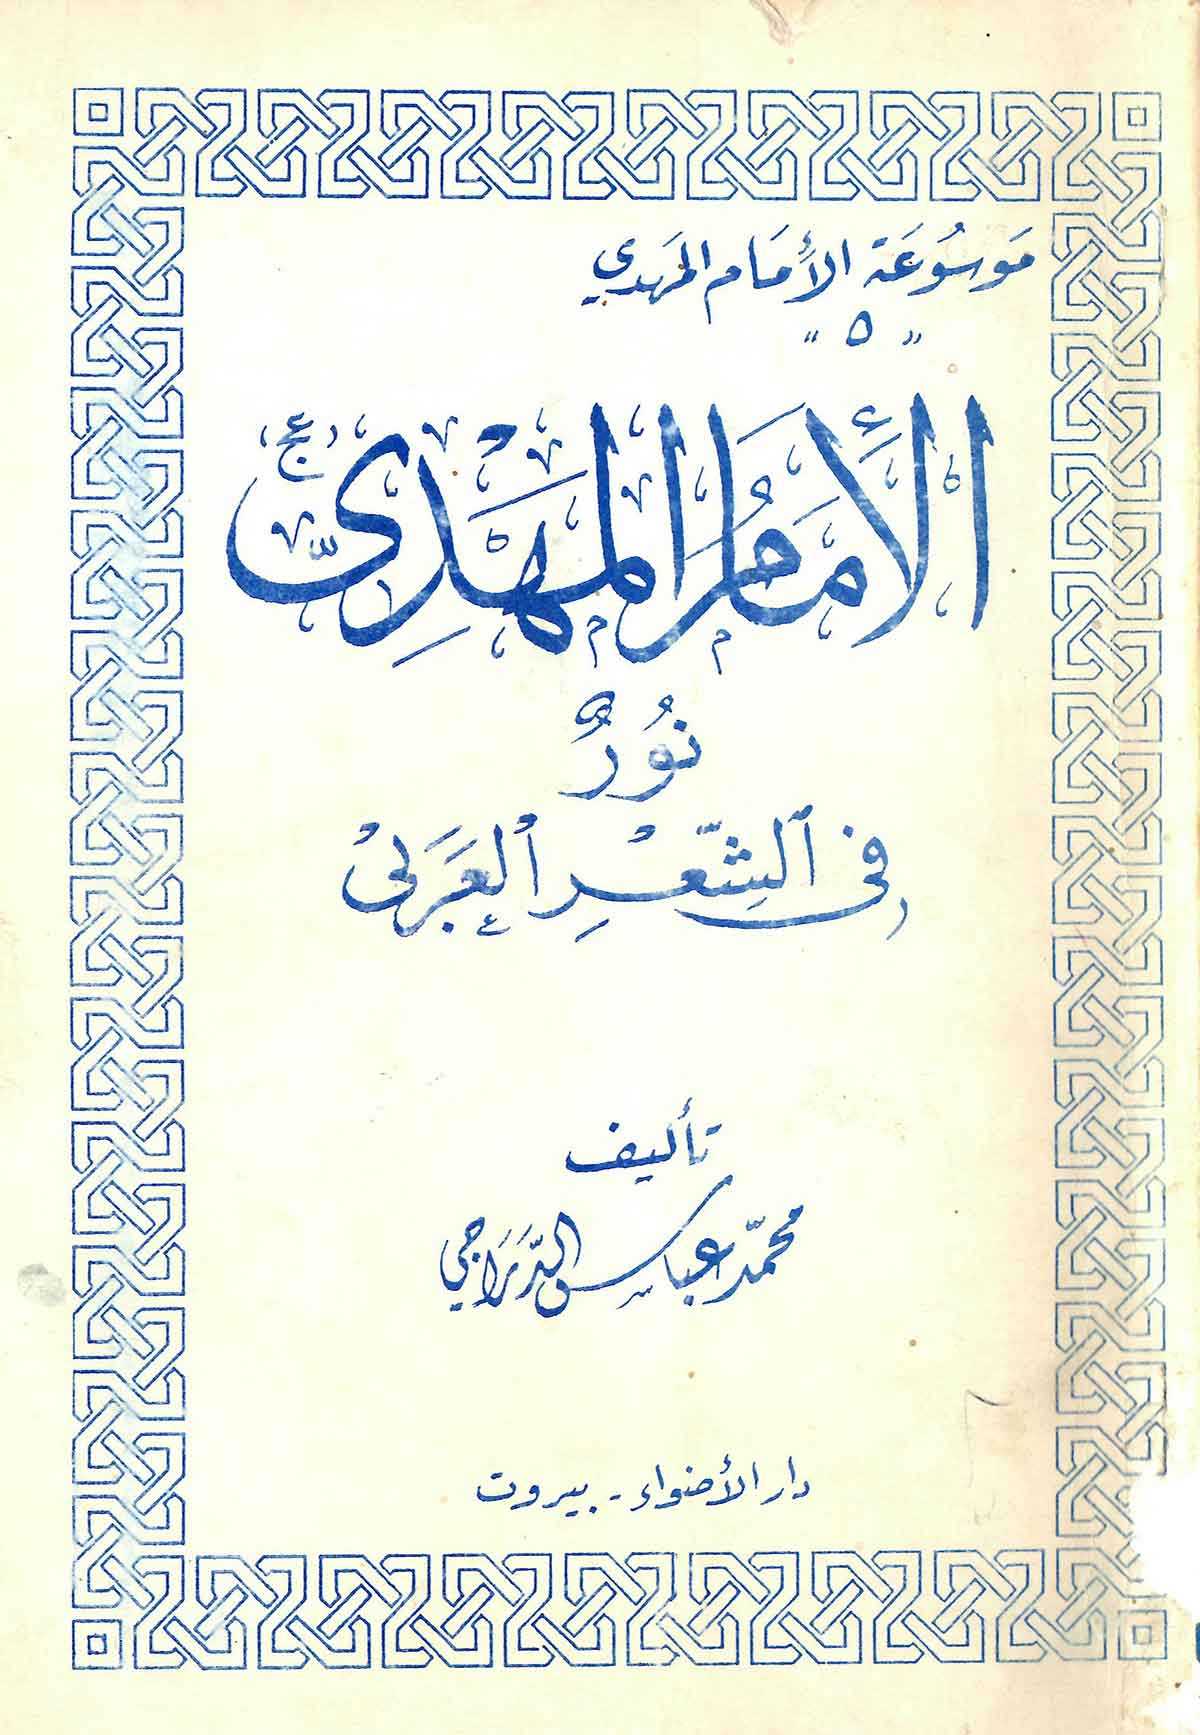 مَوسُوعَة الأِمَام المَهدي
" ٥ "
الإِمَامُ المَهْدِيّ (عج)
نُورٌ
فِي الشِّعْرِ العَرَبِيْ
تأليف
محمّد عباس الدَّرَاجي
دار الأضواء - بيروت